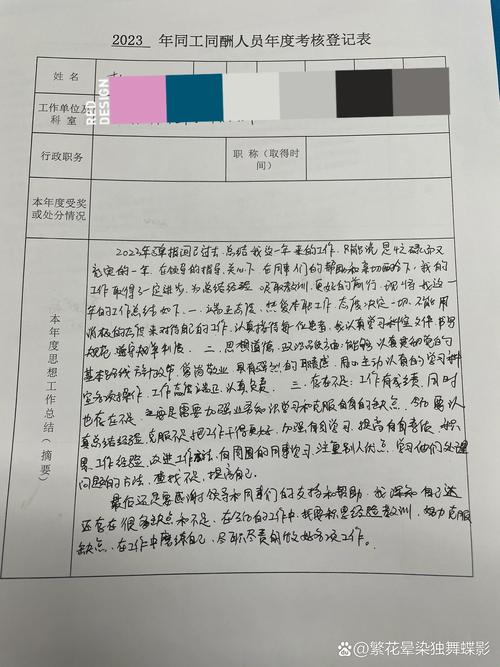 2023 年同工同酬人员年度考核登记表
姓 名
RED DESIGN
工作单位及科室
行政职务
职 称（取得时间）
本年度受奖或处分情况
本年度思想工作总结（摘要）
2023年弹指间已过去，总结我这一年来的工作，只能说是忙碌而又
充实的一年，在领导的指导、关心下，在同事们的帮助和亲切配合下，我的
工作取得了一定进步，为总结经验，吸取教训，更好的前行，现将我这一
年的工作总结如下：一、端正态度，热爱本职工作，态度决定一切，不能用
消极的态度来对待自己的工作，认真接待每位患者，认真学习科室文件书写
规范，遵守规章制度。二、思想道德，政治品质方面：能够认真贯彻党的
基本路线方针政策，爱岗敬业，具有强烈的责任感，用心主动认真的学习科
室各项操作，工作态度端正，认真负责。三、存在不足：工作有成绩，同时
也存在不足，主要是需要加强业务知识学习和克服自身的缺点，今后要认
真总结经验，克服不足，把工作干得更好，加强自身学习，提高自身素质，
累工作经验，改进工作方法，向周围的同事学习，注重别人优点，学习他们处理
问题的方法，查找不足，提高自己。
最后还是要感谢领导和同事们的支持和帮助，我深知自己
还存在很多缺点和不足，在今后的工作中，我要总结经验教训，努力克服
缺点，在工作中磨练自己，尽职尽责的做好各项工作。
百家号/繁花晕染独舞蝶影